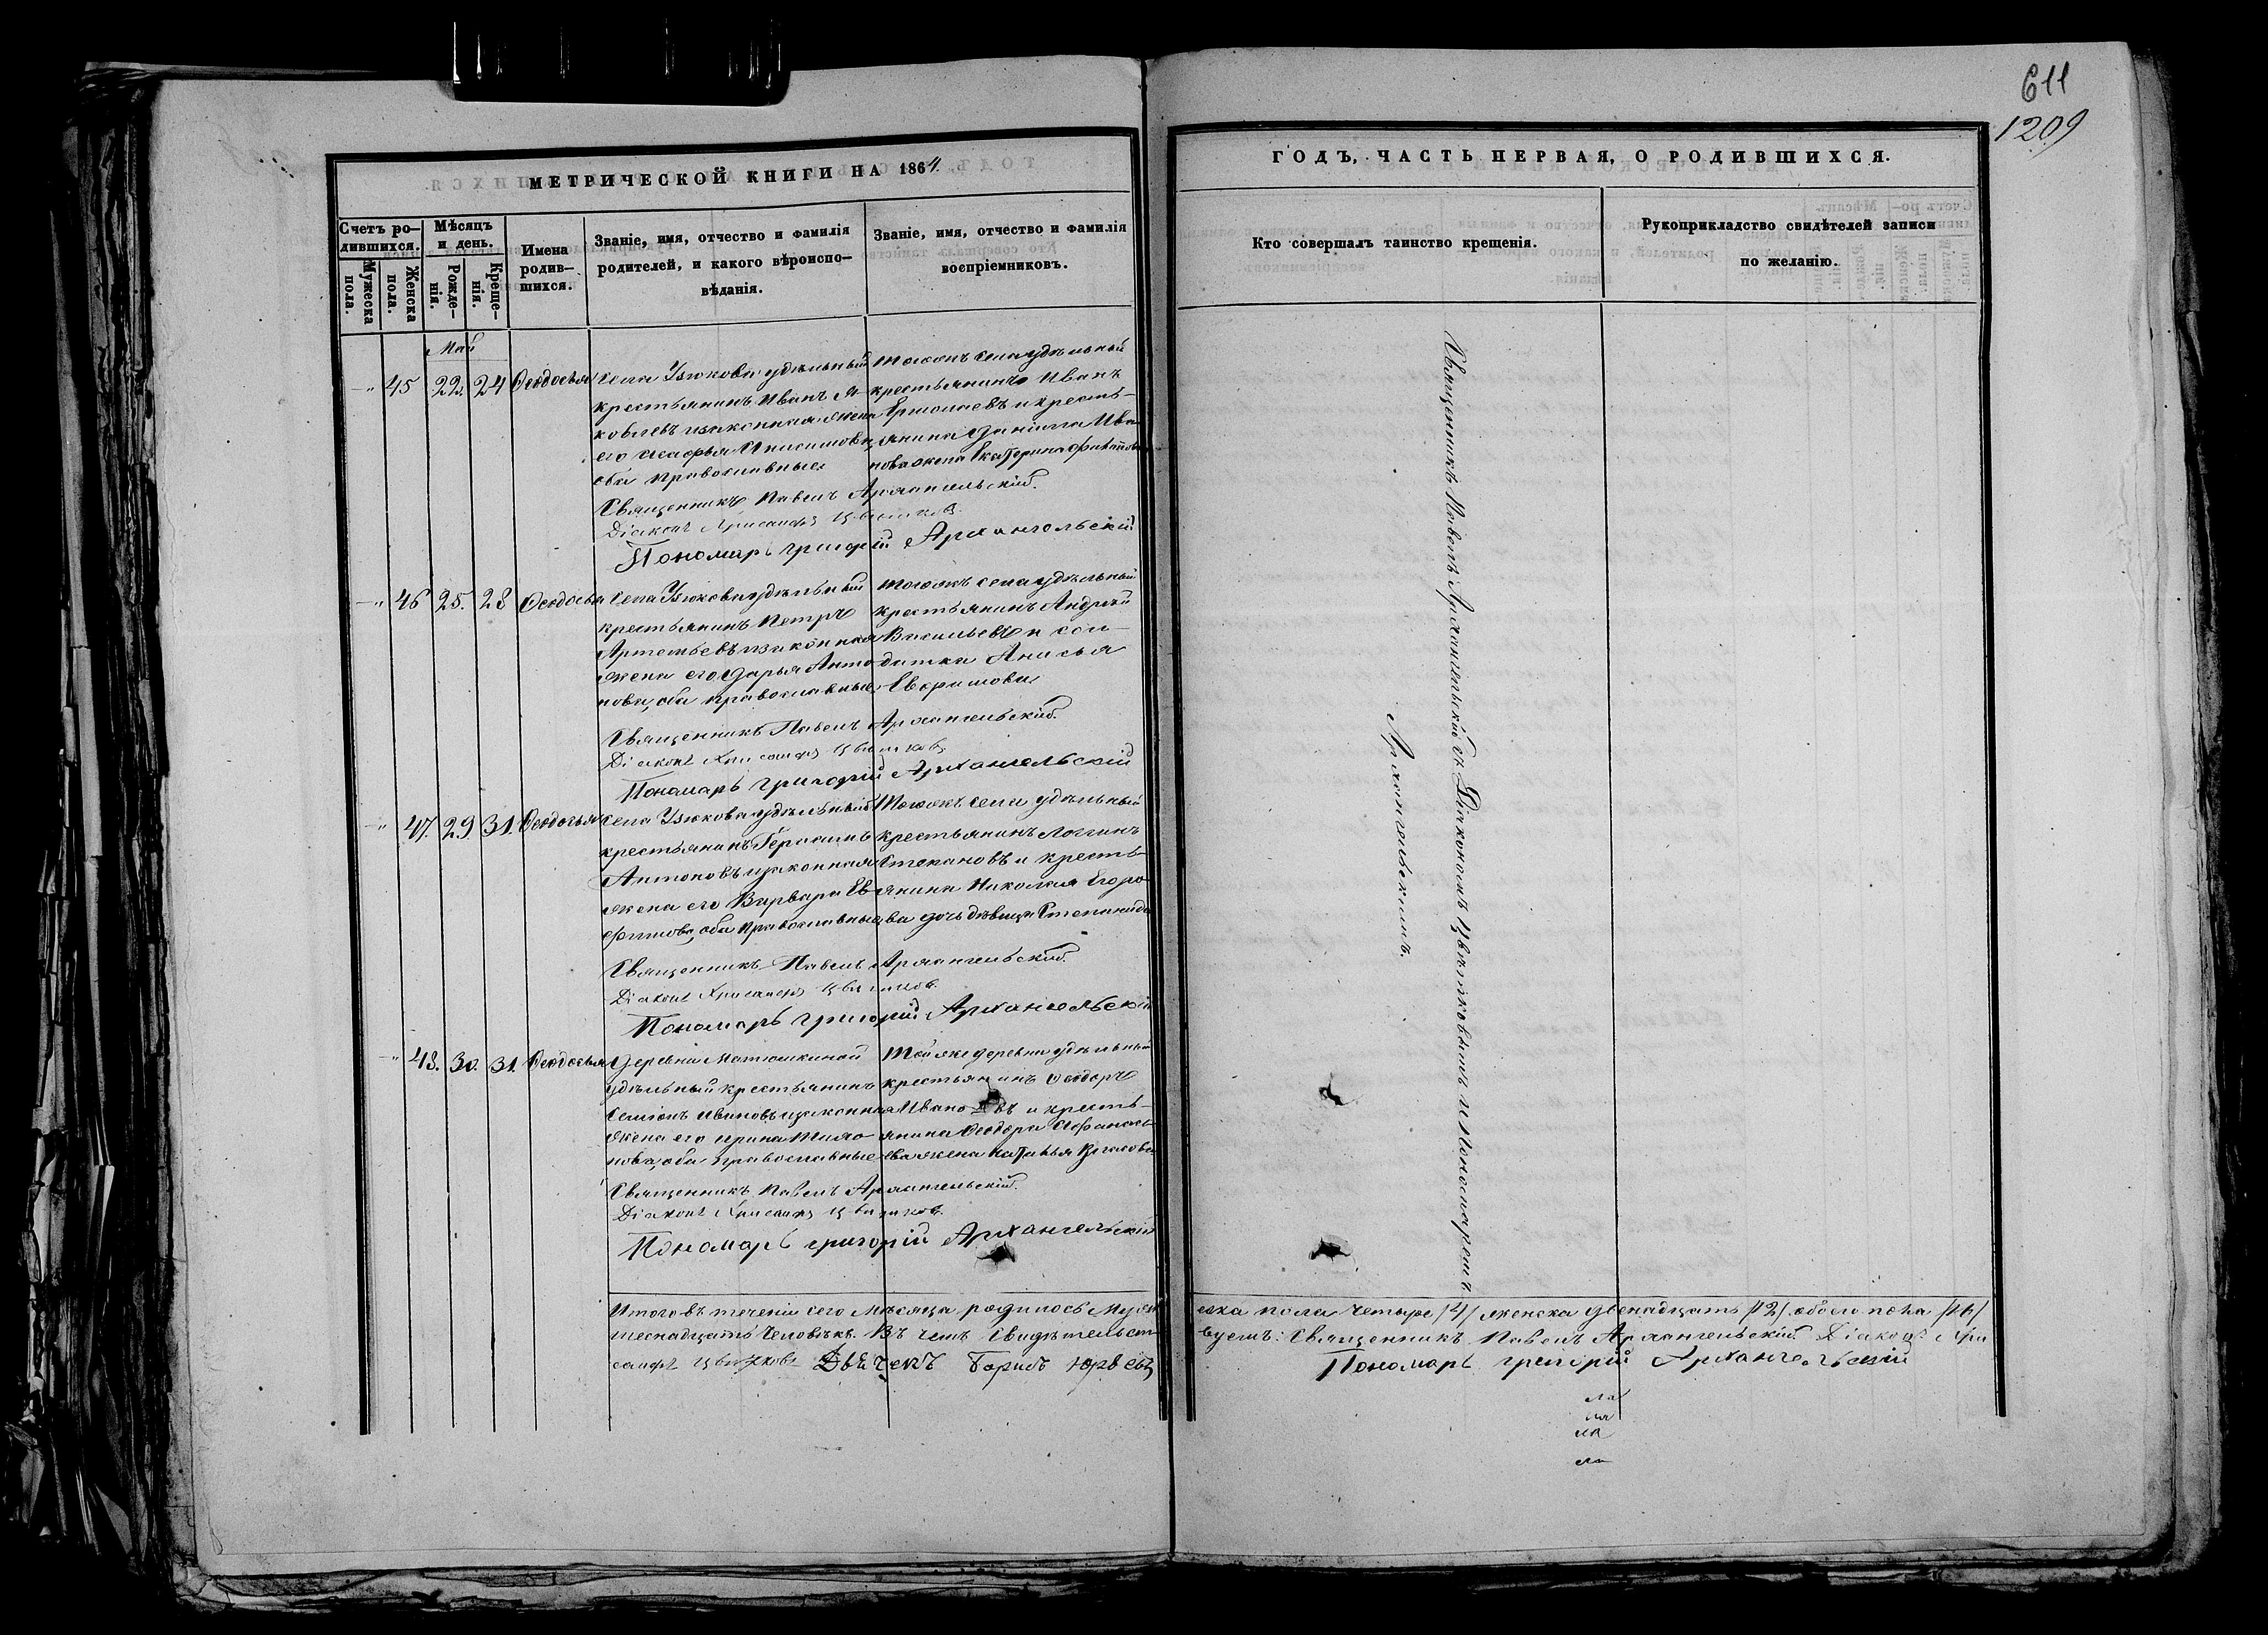 611
1209
МЕТРИЧЕСКОЙ КНИГИ НА 1864
ГОДЪ, ЧАСТЬ ПЕРВАЯ, О РОДИВШИХСЯ.
Счетъ ро-
дившихся.
Мужеска
пола.
Женска
пола.
Мѣсяцъ
и день.
Рожде-
нія.
Креще-
нія.
Имена
родив-
шихся.
Званіе, имя, отчество и фамилія
родителей, и какого вѣроиспо-
вѣданія.
Званіе, имя, отчество и фамилія
воспріемниковъ.
Кто совершалъ таинство крещенія.
Рукоприкладство свидѣтелей записи
по желанію.
Май
45 22. 24 Ѳеодосья
Села Узюкова удѣльный
крестьянинъ Иванъ Я-
ковлевъ изаконная жена
его
оба православные
Тогожъ села удѣльный
крестьянинъ Иванъ
Ермолаевъ и кресть-
янина Даніила Ива
нова жена Екатерина
Священникъ Павелъ Архангельскій.
Діаконъ Хрисанфъ Цвѣтковъ.
Пономарь Григорій Архангельскій
46 25. 28 Ѳеодосья
Села Узюкова удѣльный
крестьянинъ Петръ
Артемьевъ изаконная
жена его Дарья Анто-
нова, оба православные
Тогожъ села удѣльный
крестьянинъ Андрей
Васильевъ и сол-
датка Анисья
Священникъ Павелъ Архангельскій.
Діаконъ Хрисанфъ Цвѣтковъ
Пономарь Григорій Архангельскій
47. 29 31. Ѳеодосья
Села Узюкова удѣльный
крестьянинъ Герасимъ
Антоновъ изаконная
жена его Варвара Ев-
фимова, оба православные
Тогожъ села удѣльный
крестьянинъ Логгинъ
Степановъ и кресть-
янина Николая Егоро-
ва дочь дѣвица Степанида
Священникъ Павелъ Архангельскій.
Діаконъ Хрисанфъ Цвѣтковъ.
Пономарь Григорій Архангельскій
48. 30. 31. Ѳеодосья
Деревни Матюшкиной
удѣльный крестьянинъ
Семіонъ Ивановъ изаконная
жена его Ирина
нова, оба православные
Тойже деревни удѣльный
крестьянинъ Ѳеодоръ
Ивановъ и кресть-
янина Ѳеодора Афанась-
ева жена Наталья
Священникъ Павелъ Архангельскій.
Діаконъ Хрисанфъ Цвѣтковъ.
Пономарь Григорій Архангельскій
Священникъ Павелъ Архангельскій съ Діакономъ Цвѣтковымъ и Пономаремъ
Архангельскимъ.
Итого въ теченіи сего мѣсяца родилось Муже
ска пола четыре /4/ женска двенадцать /12/ обоего пола /16/
шеснадцать человѣкъ. Въ чемъ свидѣтельст
вуемъ: Священникъ Павелъ Архангельскій Діаконъ Хри
санфъ Цвѣтковъ Дьячекъ Борисъ Юрьевъ
Пономарь Григорій Архангельскій
ла
ла
ла
ла